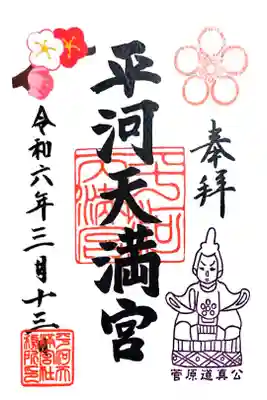 奉拝
平河天満宮
令和六年三月十三日
菅原道真公